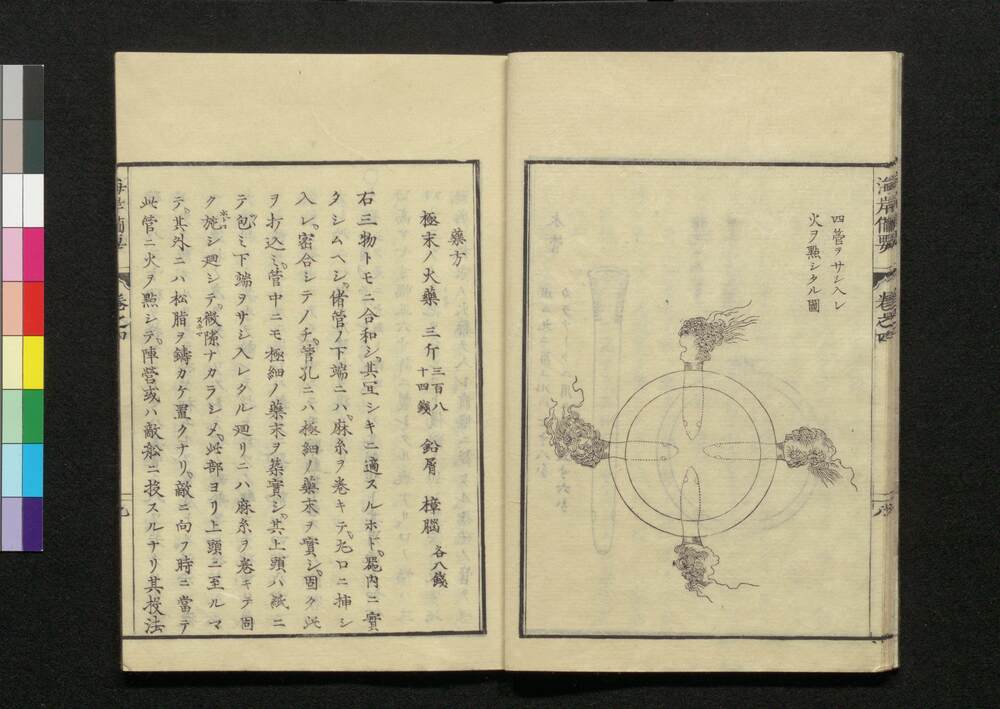 四管ヲサシ入レ
火ヲ點シタル圖
海岸備要
藥方
極末ノ火藥 三斤 三百八十四錢 鉛屑 樟腦 各八錢
右三物トモニ合和シ其冝シキニ適スルホド噐内ニ實
タシムヘシ偖管ノ下端ニハ麻糸ヲ卷キテ孔口ニ挿シ
入レ密合シテノチ管孔ニハ極細ノ藥末ヲ實シ固ク
ヲ打込ミ管中ニモ極細ノ藥末ヲ築實シ其上頭ハ紙ニ
テ包ミ下端ヲサシ入レタル廻リニハ麻糸ヲ卷キテ固
ク施シ廻シテ微隙ナカラシメ此部ヨリ上頭ニ至ルマ
テ其外ニハ松脂ヲ鑄カケ置クナリ敵ニ向フ時ニ當テ
此管ニ火ヲ點シテ陣營或ハ敵船ニ投スルナリ其投法
卷之四
九